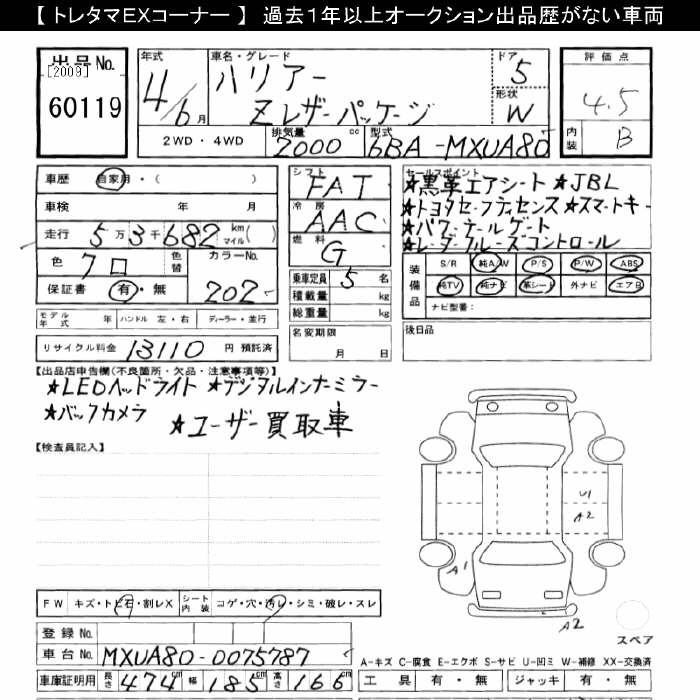 【トレタマEXコーナー】 過去1年以上オークション出品歴がない車両
出品No.
[2009]
60119
年式 4/6月
車名・グレード ハリアー
Zレザーパッケージ
ドア 5
形状 W
評価点 4.5
内装 B
2WD・4WD 排気量 2000 cc 型式 6BA-MXUA80
車歴 自家用・( )
車検 年 月
走行 5万3千682 km マイル( )
色 クロ 色替 カラーNo. 202
保証書 有・無
モデル年式 年 ハンドル 左・右 ディーラー・並行
リサイクル料金 13110 円 預託済
シフト FAT
冷房 AAC
燃料 G
乗車定員 5 名
積載量 kg
総重量 kg
名変期限 月 日
セールスポイント
★黒革エアシート ★JBL
★トヨタセーフティセンス ★スマートキー
★パワーテールゲート
★レーダークルーズコントロール
装備品 S/R 純A/W P/S P/W ABS
純TV 純ナビ 革シート 外ナビ エアB
ナビ型番:
後日品
【出品店申告欄(不良箇所・欠品・注意事項等)】
★LEDヘッドライト ★デジタルインナーミラー
★バックカメラ ★ユーザー買取車
【検査員記入】
U1
A2
A1
A2
スペア
FW キズ・トビ石・割レX シート内装 コゲ・穴・汚レ・シミ・破レ・スレ
登録No.
車台No. MXUA80-0075787
車庫証明用 長さ 474cm 幅 185cm 高さ 166cm
A-キズ C-腐食 E-エクボ S-サビ U-凹ミ W-補修 XX-交換済
工具 有・無 ジャッキ 有・無